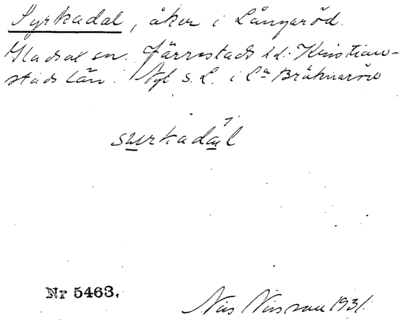 Syrkadal, åker i Långaröd.
Gladsax sn. Järrestads hd. Kristian-
stads län. Nyb s. L. i La Bräknaröd
surkadál
Nr 5463.
Nils Nilsson 1931.